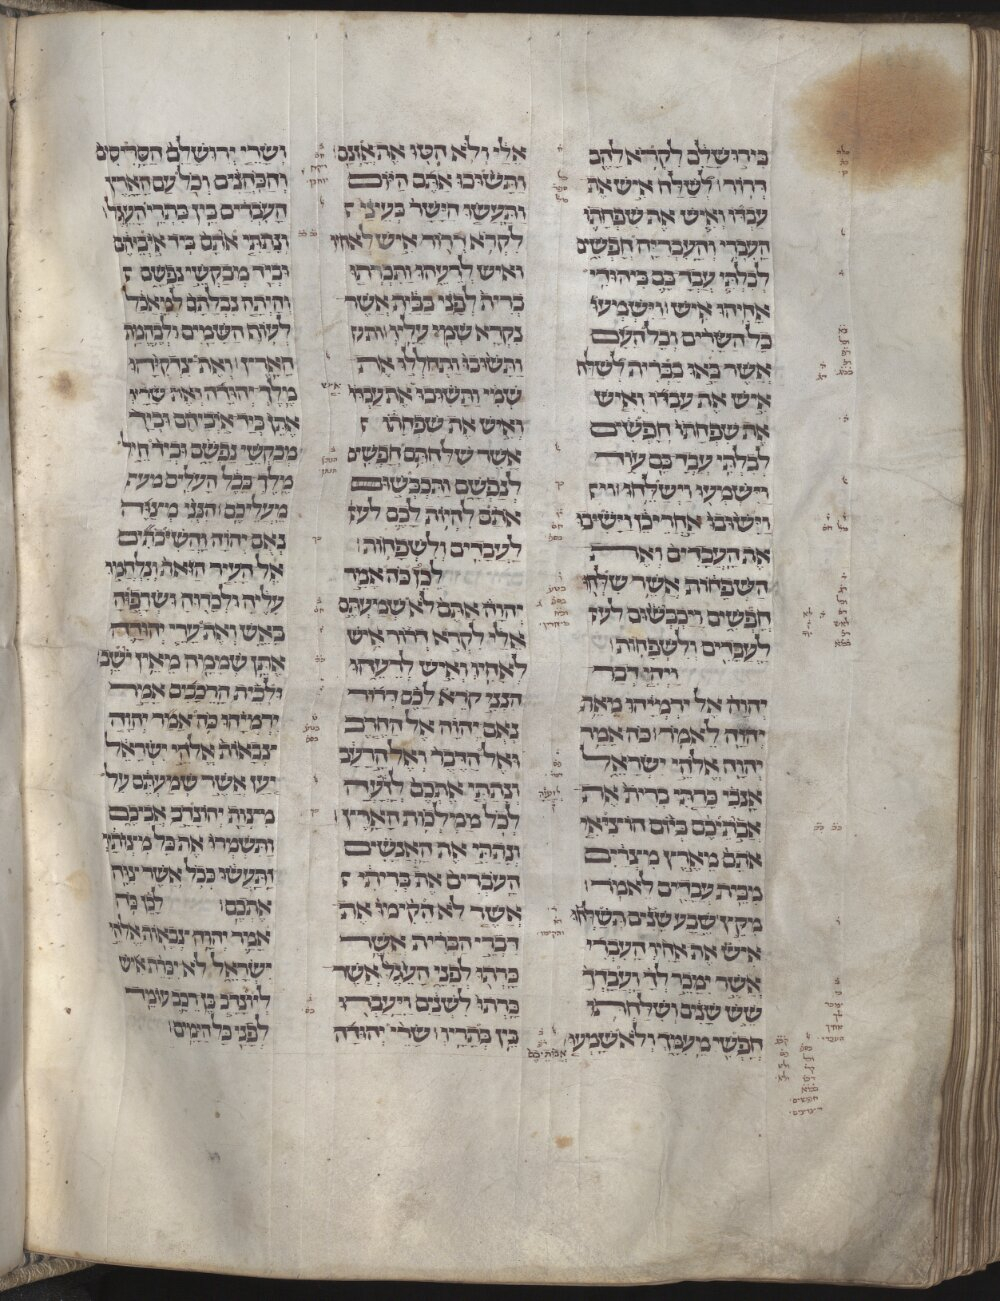 בירושלם לקרא להם
דרור לשלח איש את
עבדו ואיש את שפחתו
העברי והעבריה חפשים
לבלתי עבד בם ביהודי
אחיהו איש וישמעו
כל השרים וכל העם
אשר באו בברית לשלח
איש את עבדו ואיש
את שפחתו חפשים
לבלתי עבד בם עוד
וישמעו וישלחו
וישובו אחרי כן וישיבו
את העבדים ואת
השפחות אשר שלחו
חפשים ויכבשום
לעבדים ולשפחות
ויהי דבר
יהוה אל ירמיהו מאת
יהוה לאמר כה אמר
יהוה אלהי ישראל
אנכי כרתי ברית את
אבתיכם ביום הוציאי
אתם מארץ מצרים
מבית עבדים לאמר
מקץ שבע שנים תשלחו
איש את אחיו העברי
אשר ימכר לך ועבדך
שש שנים ושלחתו
חפשי מעמך ולא שמעו
אבותיכם
אלי ולא הטו את אזנם
ותשובו אתם היום
ותעשו הישר בעיני
לקרא דרור איש לאחיו
ואיש לרעהו ותכרתו
ברית לפני בבית אשר
נקרא שמי עליו
ותשובו ותחללו את
שמי ותשובו את עבדו
ואיש את שפחתו
אשר שלחתם חפשים
לנפשם ותכבשום
אתם להיות לכם
לעבדים ולשפחות
לכן כה אמר
יהוה אתם לא שמעתם
אלי לקרא דרור איש
לאחיו ואיש לרעהו
הנני קרא לכם דרור
נאם יהוה אל החרב
ואל הדבר ואל הרעב
ונתתי אתכם לזועה
לכל ממלכות הארץ
ונתתי את האנשים
העברים את בריתי
אשר לא הקימו את
דברי הברית אשר
כרתו לפני העגל אשר
כרתו לשנים ויעברו
בין בתריו שרי יהודה
ושרי ירושלם הסרסים
והכהנים וכל עם הארץ
העברים בין בתרי העגל
ונתתי אתם ביד איביהם
וביד מבקשי נפשם
והיתה נבלתם למאכל
לעוף השמים ולבהמת
הארץ ואת צדקיהו
מלך יהודה ואת שריו
אתן ביד איביהם וביד
מבקשי נפשם וביד חיל
מלך בבל העלים
מעליכם הנני מצוה
נאם יהוה והשיבתים
אל העיר הזאת ונלחמו
עליה ולכדוה ושרפוה
באש ואת ערי יהודה
אתן שממה מאין ישב
ולבית הרכבים אמר
ירמיהו כה אמר יהוה
צבאות אלהי ישראל
יען אשר שמעתם על
מצות יהונדב אביכם
ותשמרו את כל מצותיו
ותעשו ככל אשר צוה
אתכם לכן כה
אמר יהוה צבאות אלהי
ישראל לא יכרת איש
ליונדב בן רכב עומד
לפני כל הימים